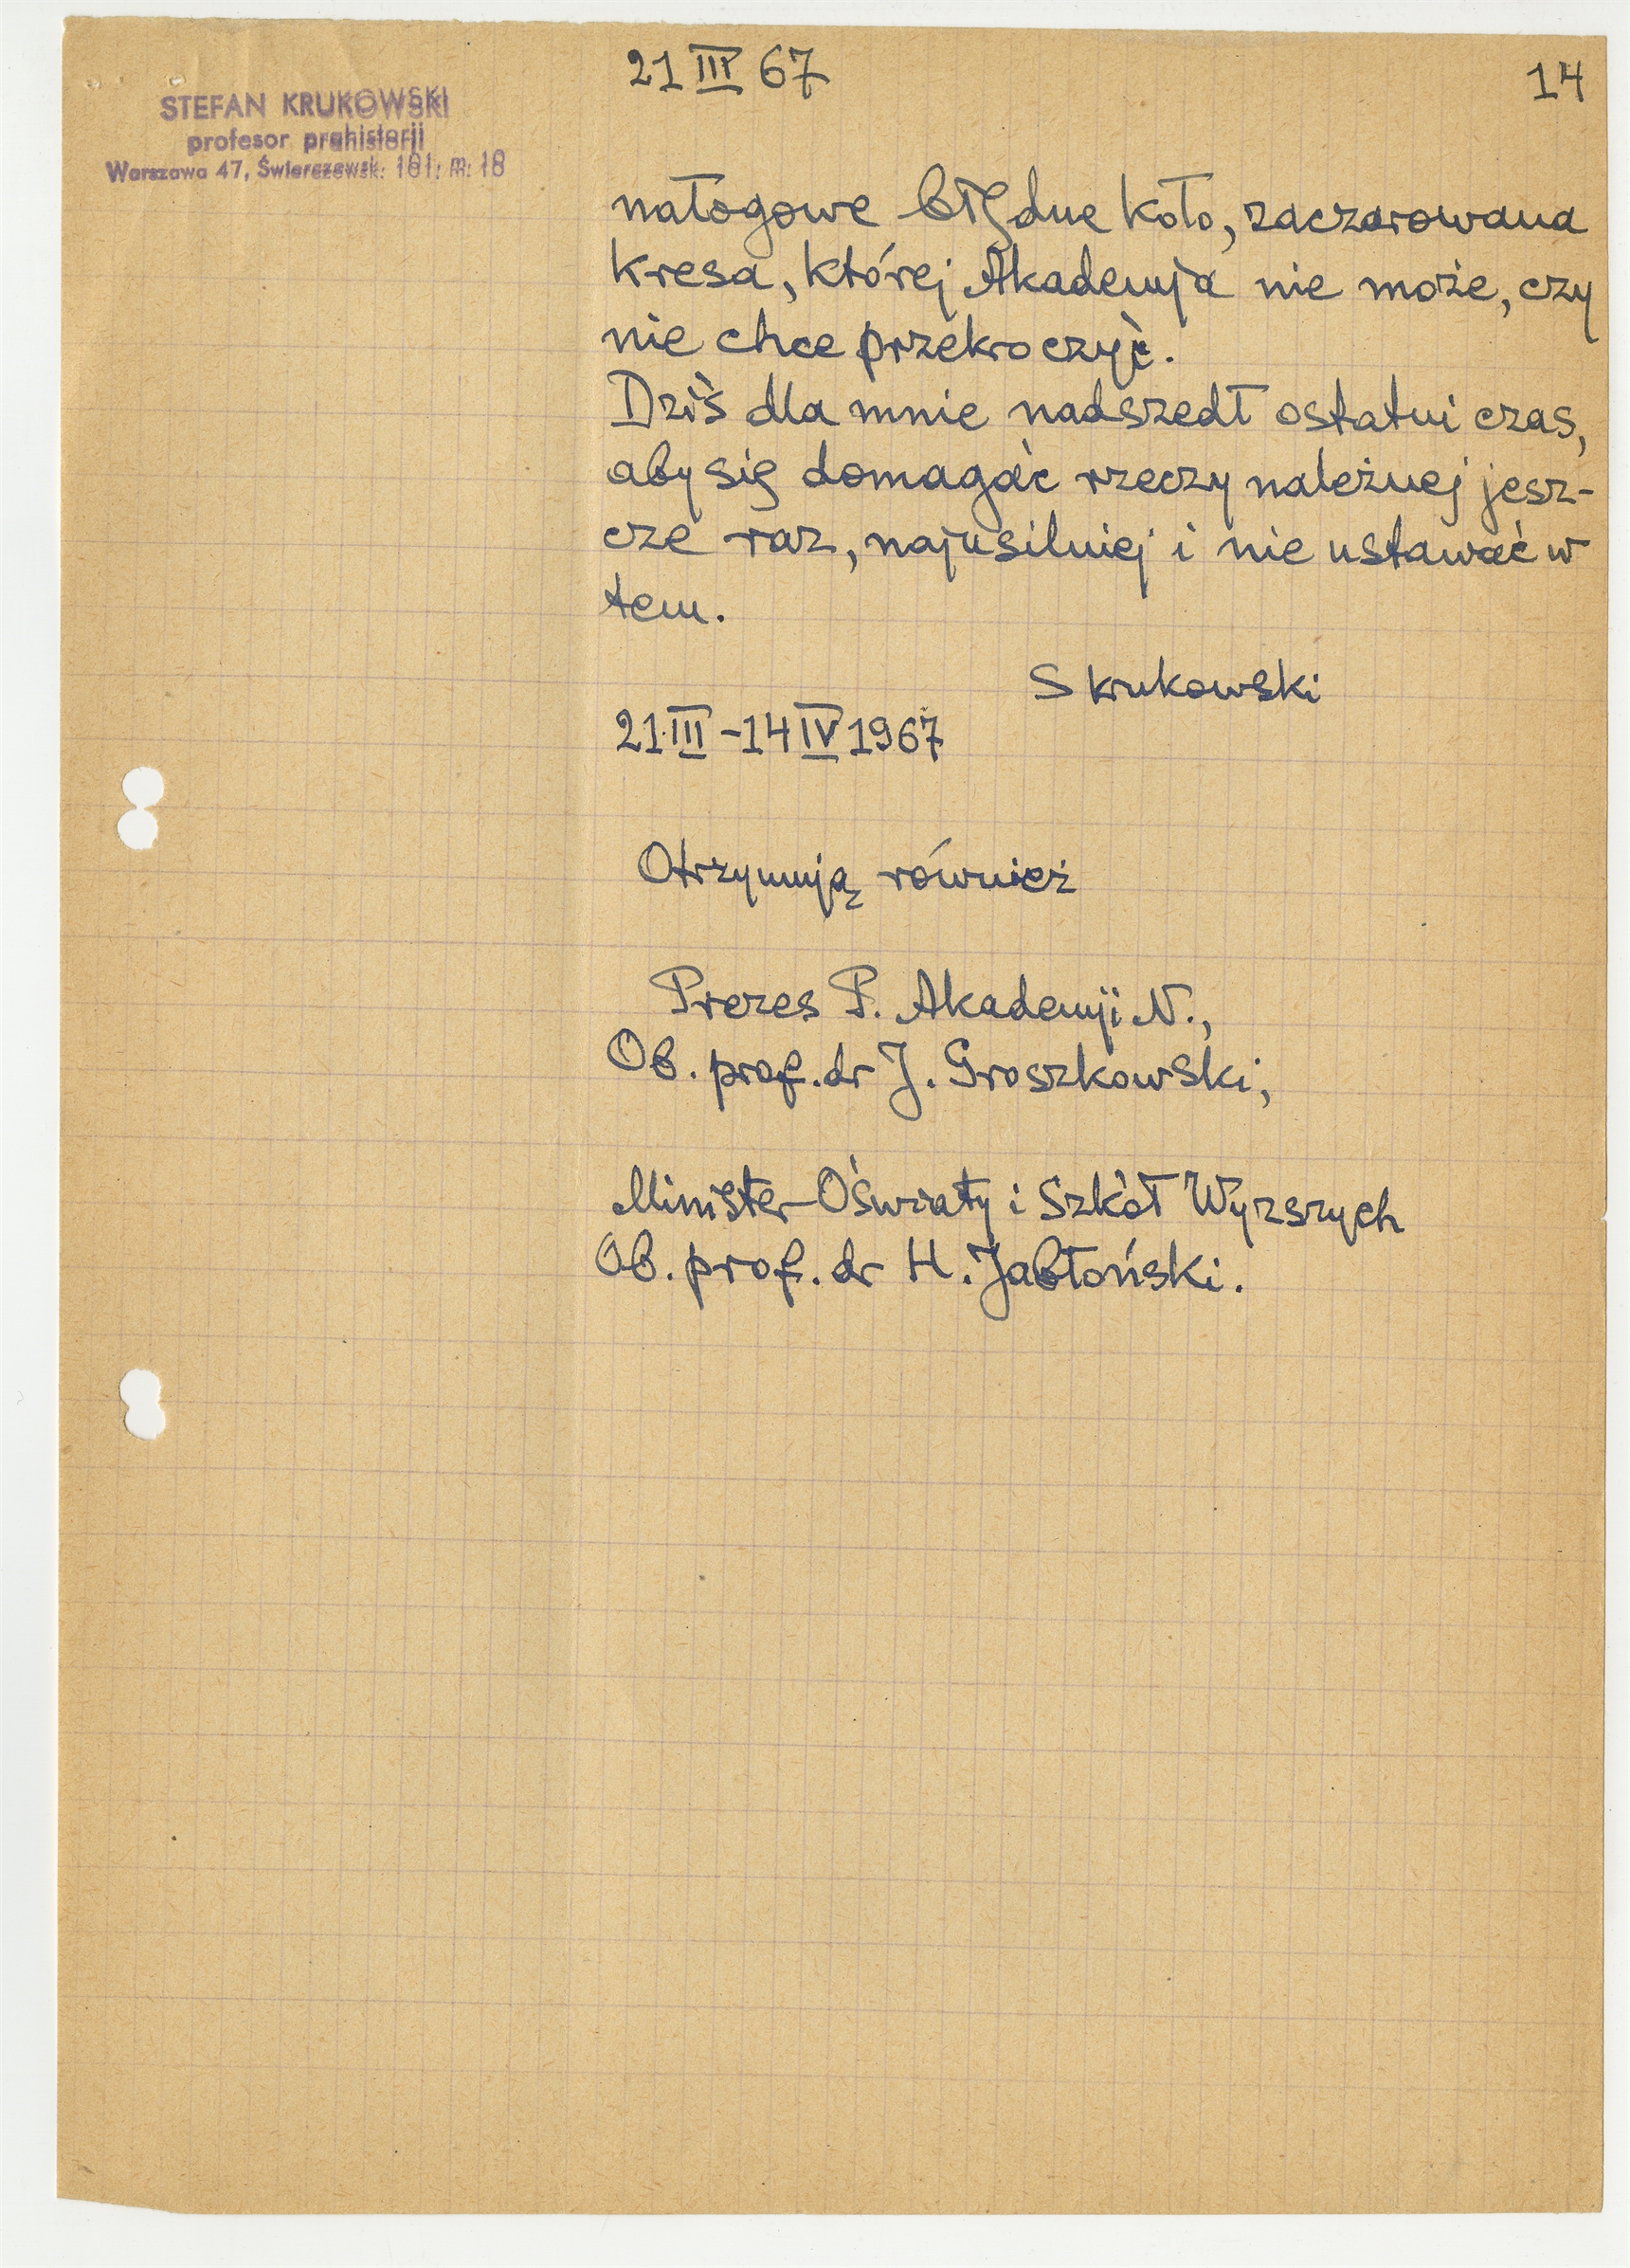 STEFAN KRUKOWSKI
profesor prahistorji
Warszawa 47, Świerczewsk. 101, m. 18
21 III 67
14
nałogowe błędne koło, zaczarowana
kresa, której Akademja nie może, czy
nie chce przekroczyć.
Dziś dla mnie nadszedł ostatni czas,
aby się domagać rzeczy należnej jesz-
cze raz, najusilniej i nie ustawać w
tem.
S Krukowski
21 III - 14 IV 1967
Otrzymują również
Prezes P. Akademji N.,
Ob. prof. dr J. Groszkowski,
Minister Oświaty i Szkół Wyższych
Ob. prof. dr H. Jabłoński.